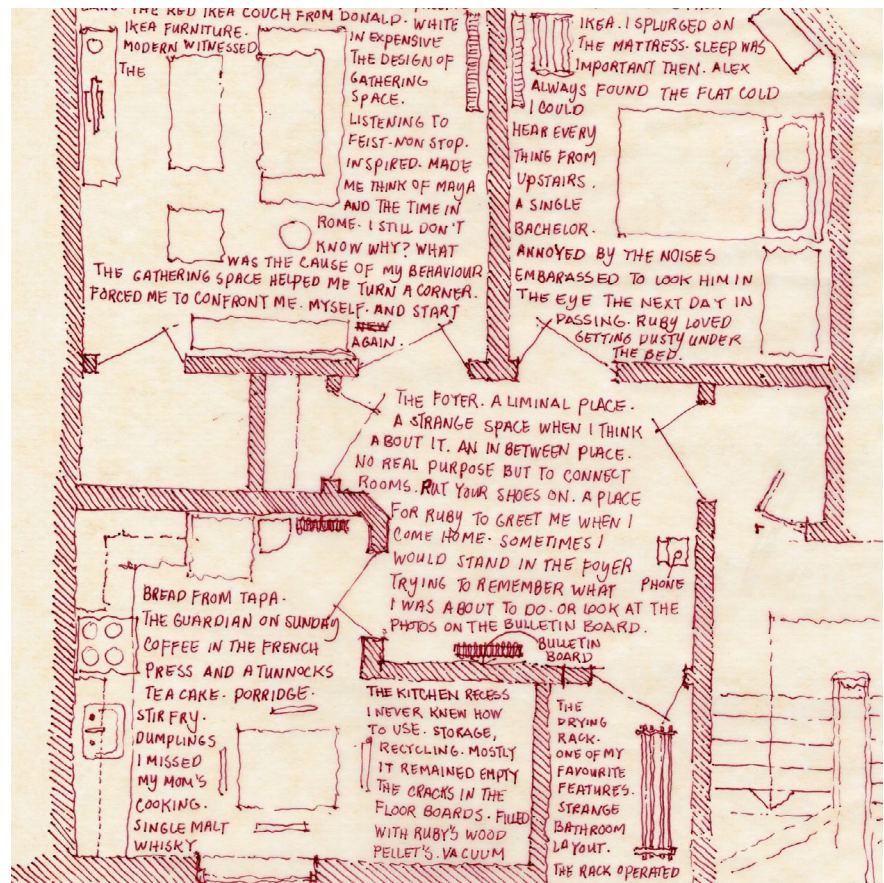 THE RED IKEA COUCH FROM DONALD. WHITE
IKEA FURNITURE. IN EXPENSIVE
MODERN WITNESSED THE DESIGN OF
THE GATHERING
SPACE.
LISTENING TO
FEIST-NON STOP.
INSPIRED. MADE
ME THINK OF MAYA
AND THE TIME IN
ROME. I STILL DON'T
KNOW WHY? WHAT
WAS THE CAUSE OF MY BEHAVIOUR
THE GATHERING SPACE HELPED ME TURN A CORNER.
FORCED ME TO CONFRONT ME. MYSELF. AND START
NEW
AGAIN.
IKEA. I SPLURGED ON
THE MATTRESS. SLEEP WAS
IMPORTANT THEN. ALEX
ALWAYS FOUND THE FLAT COLD
I COULD
HEAR EVERY
THING FROM
UPSTAIRS.
A SINGLE
BACHELOR.
ANNOYED BY THE NOISES
EMBARASSED TO LOOK HIM IN
THE EYE THE NEXT DAY IN
PASSING. RUBY LOVED
GETTING DUSTY UNDER
THE BED.
THE FOYER. A LIMINAL PLACE.
A STRANGE SPACE WHEN I THINK
ABOUT IT. AN IN BETWEEN PLACE.
NO REAL PURPOSE BUT TO CONNECT
ROOMS. PUT YOUR SHOES ON. A PLACE
FOR RUBY TO GREET ME WHEN I
COME HOME. SOMETIMES I
WOULD STAND IN THE FOYER
TRYING TO REMEMBER WHAT
I WAS ABOUT TO DO. OR LOOK AT THE
PHOTOS ON THE BULLETIN BOARD.
PHONE
BULLETIN
BOARD
BREAD FROM TAPA.
THE GUARDIAN ON SUNDAY
COFFEE IN THE FRENCH
PRESS AND A TUNNOCKS
TEA CAKE. PORRIDGE.
STIR FRY.
DUMPLINGS
I MISSED
MY MOM'S
COOKING.
SINGLE MALT
WHISKY
THE KITCHEN RECESS
I NEVER KNEW HOW
TO USE. STORAGE,
RECYCLING. MOSTLY
IT REMAINED EMPTY
THE CRACKS IN THE
FLOOR BOARDS. FILLED
WITH RUBY'S WOOD
PELLET'S. VACUUM
THE
DRYING
RACK.
ONE OF MY
FAVOURITE
FEATURES.
STRANGE
BATHROOM
LAYOUT.
THE RACK OPERATED